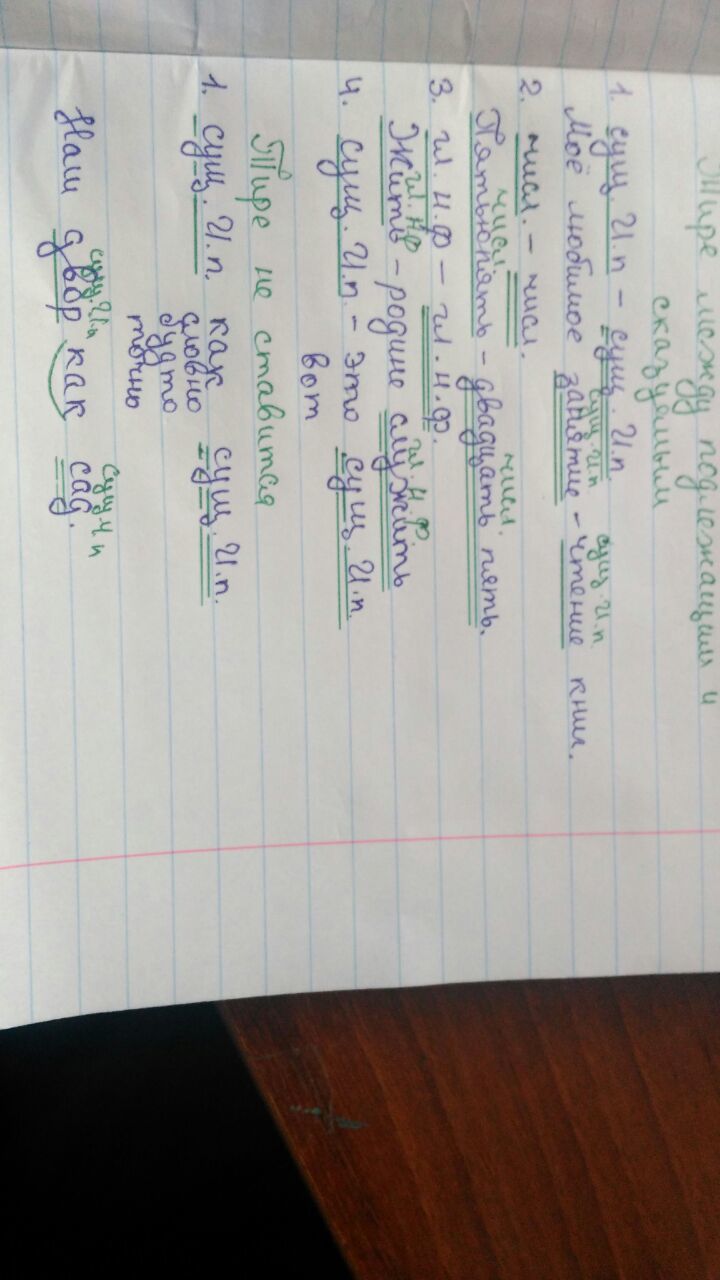 Тире между подлежащим и
сказуемым
1. сущ. И.п – сущ. И.п
сущ. и.п сущ. и.п.
Моё любимое занятие – чтение книг.
2. числ. – числ.
числ. числ.
Пятью пять – двадцать пять.
3. гл. н.ф – гл. н.ф.
гл. н.ф гл. н.ф.
Жить – родине служить
4. сущ. И.п. – это сущ. И.п.
вот
Тире не ставится
1. сущ. И.п. как сущ. И.п.
словно
будто
точно
сущ. и.п сущ. и.п
Наш двор как сад.